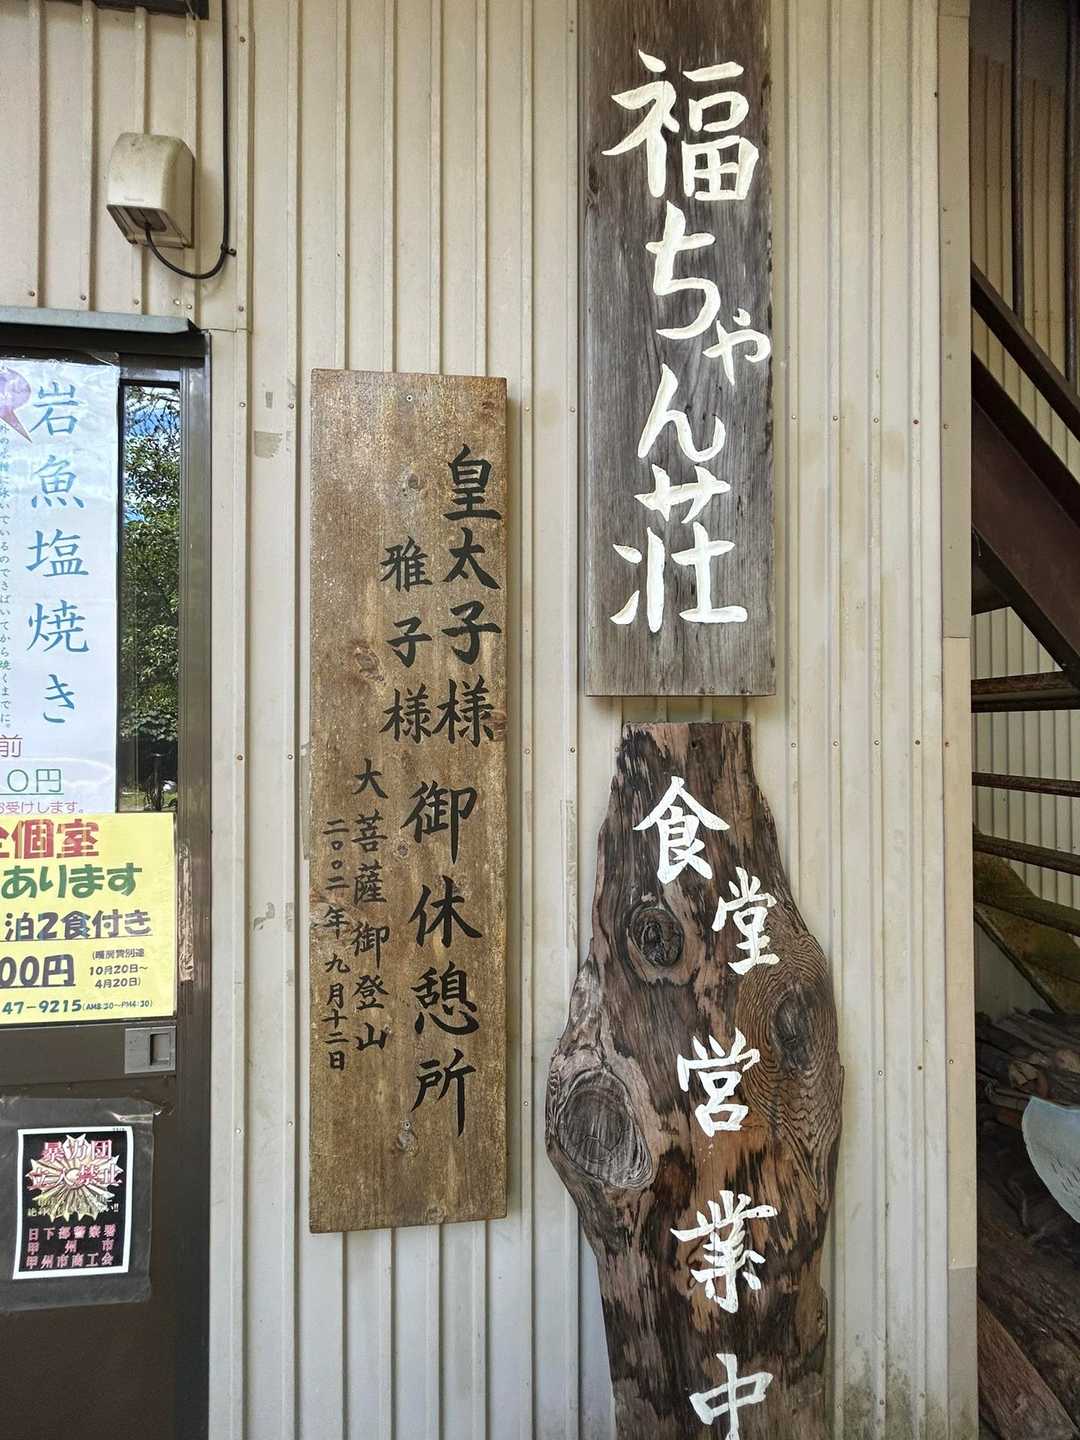 福ちゃん荘
食堂営業中
皇太子様
雅子様
御休憩所
大菩薩御登山
二〇〇二年九月十二日
岩魚塩焼き
前
0円
お受けします。
全個室
あります
泊2食付き
00円
(暖房費別途
10月20日~
4月20日)
47-9215(AM8:30~PM4:30)
暴力団
立入禁止
日下部警察署
甲州市
甲州市商工会